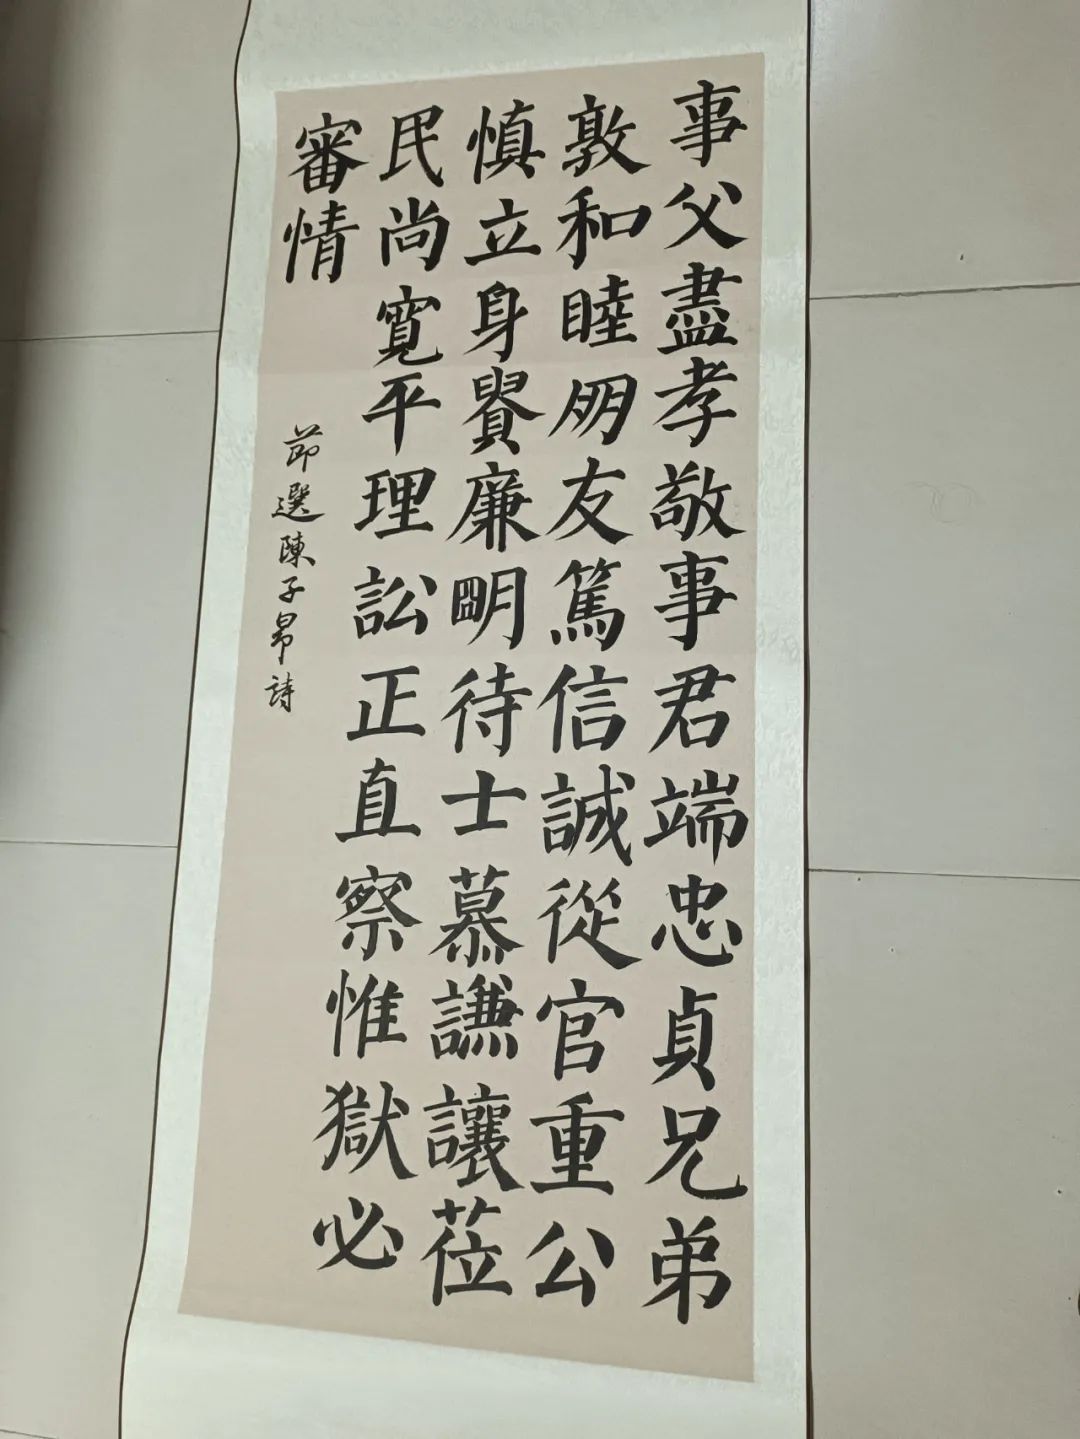 事父盡孝敬事君端忠貞兄弟
敦和睦朋友篤信誠從官重公
慎立身貴廉明待士慕謙讓莅
民尚寬平理訟正直察惟獄必
審情
節選陳子昂詩